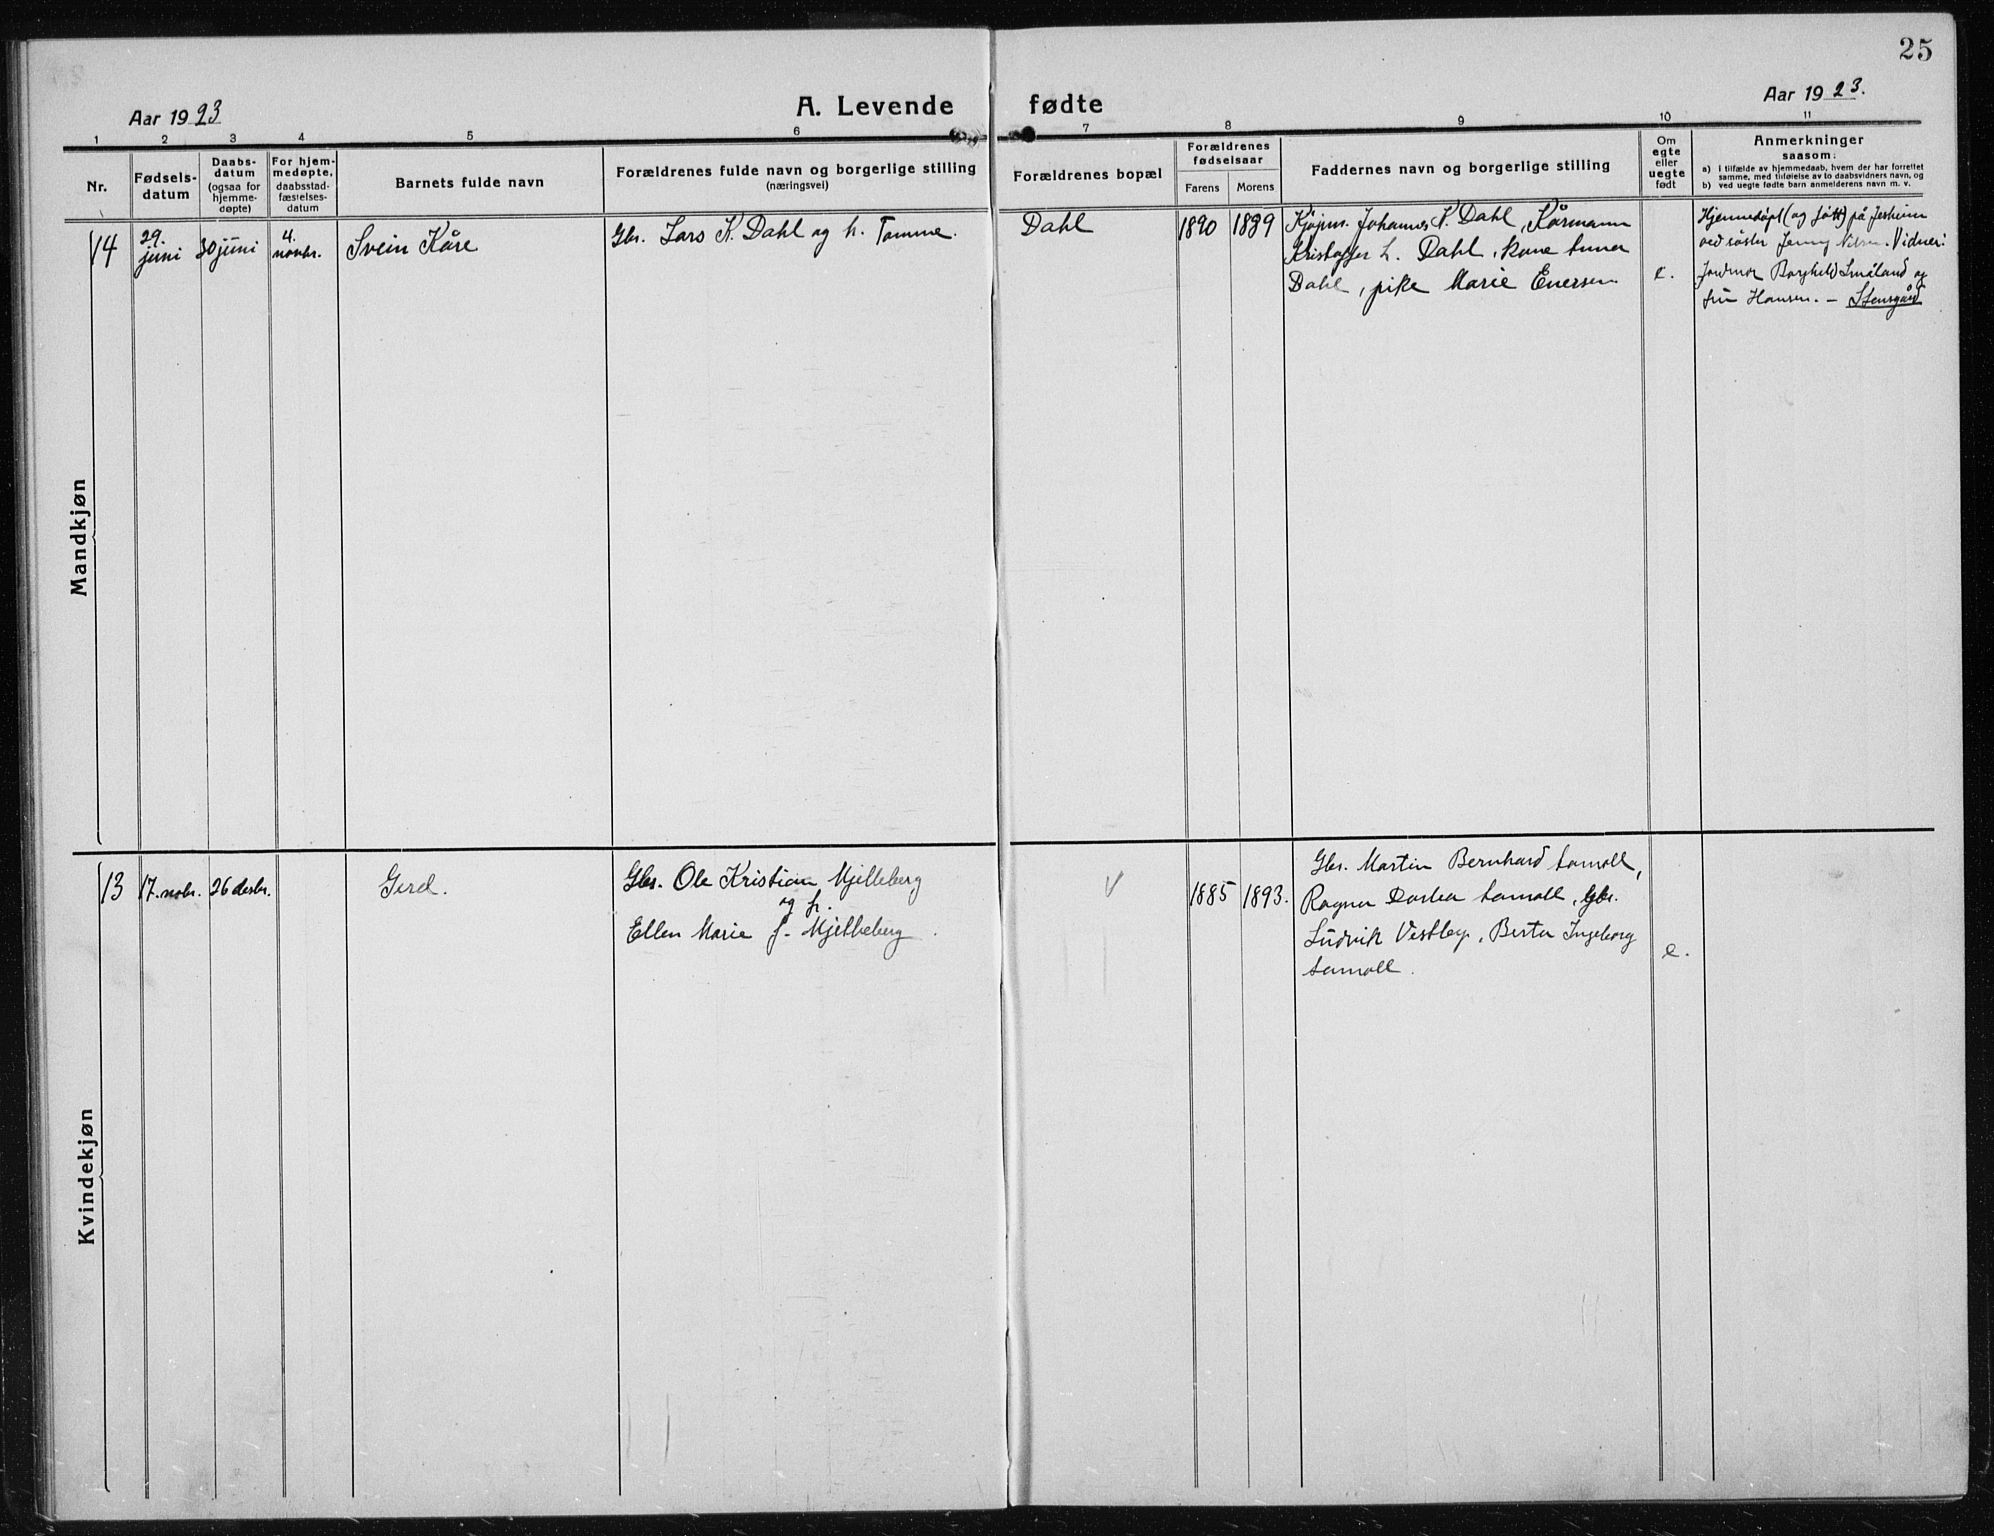 25
Aar 1923
A. Levende fødte
Aar 1923.
1 2 3 4 5 6 7 8 9 10 11
Nr.
Fødsels-
datum
Daabs-
datum
(ogsaa for
hjemme-
døpte)
For hjem-
medøpte,
daabsstad-
fæstelses-
datum
Barnets fulde navn
Forældrenes fulde navn og borgerlige stilling
(næringsvei)
Forældrenes bopæl
Forældrenes
fødselsaar
Farens Morens
Faddernes navn og borgerlige stilling
Om
egte
eller
uegte
født
Anmerkninger
saasom:
a) I tilfælde av hjemmedaab, hvem der har forrettet
samme, med tilføielse av to daabsvidners navn, og
b) ved uegte fødte barn anmelderens navn m. v.
Mandkjøn
14
29.
juni
30 juni
4.
novbr.
Svein Kåre
Gbr. Lars K. Dahl og h. Tomme.
Dahl
1890 1889
Kjøpm. Johannes K. Dahl, Kårmann
Kristoffer L. Dahl, kone Anna
Dahl, pike Marie Enersen
e.
Hjemmedøpt (og født) på Jesheim
ved søster Jenny Nilsen. Vidner:
Jordmor Borghild Småland og
frü Hansen. – Stensgård
Kvindekjøn
13
17. nobr.
26 desbr.
Gerd.
Gbr. Ole Kristian Mjelleberg
og h.
Ellen Marie f. Mjelleberg
V
1885 1893.
Gbr. Martin Bernhard
Ragna
Gbr.
Lüdvik Vestby, Berta Ingeborg
e.